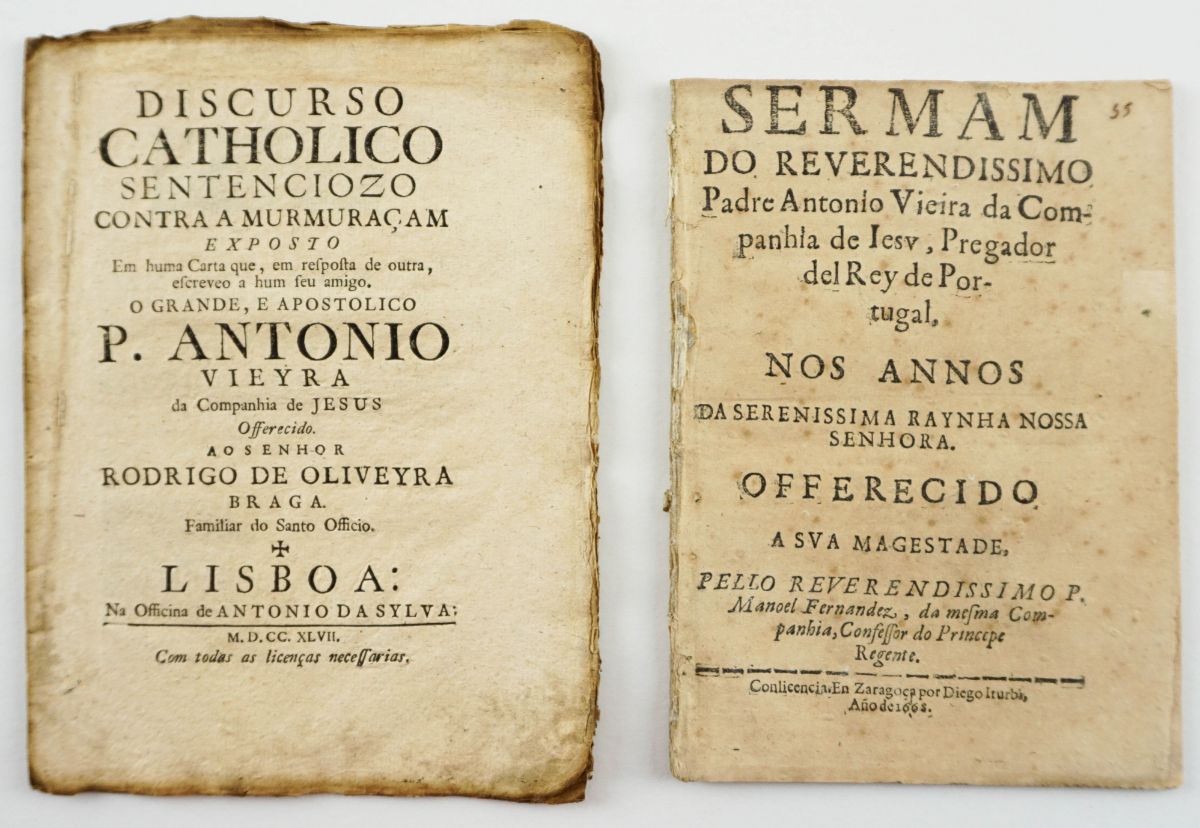 DISCURSO
CATHOLICO
SENTENCIOZO
CONTRA A MURMURAÇAM
EXPOSTO
Em huma Carta que, em reſpoſta de outra,
eſcreveo a hum ſeu amigo.
O GRANDE, E APOSTOLICO
P. ANTONIO
VIEYRA
da Companhia de JESUS
Offerecido.
AO SENHOR
RODRIGO DE OLIVEYRA
BRAGA.
Familiar do Santo Officio.
✠
LISBOA:
Na Officina de ANTONIO DA SYLVA:
M. D. CC. XLVII.
Com todas as licenças neceſſarias.
55
SERMAM
DO REVERENDISSIMO
Padre Antonio Vieira da Com-
panhia de Ieſv, Pregador
del Rey de Por-
tugal,
NOS ANNOS
DA SERENISSIMA RAYNHA NOSSA
SENHORA.
OFFERECIDO
A SVA MAGESTADE,
PELLO REVERENDISSIMO P.
Manoel Fernandez, da meſma Com-
panhia, Confeſſor do Princepe
Regente.
Conlicencia. En Zaragoça por Diego Iturbi,
Año de 1668.